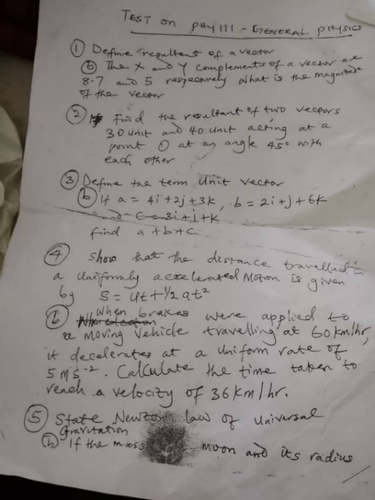 TEST on PHY 111 - GENERAL PHYSICS
① Define resultant of a vector
ⓑ The X and Y complements of a vector are
8.7 and 5 respectively what is the magnitude
of the vector
② Find the resultant of two vectors
30 unit and 40 unit acting at a
point O at an angle 45° with
each other
③ Define the term Unit vector
ⓑ If a = 4i + 2j + 3k, b = 2i + j + 6k
and c = 3i + j + k
find a + b + c
④ Show that the distance travelled in
a Uniformly accelerated Motion is given
by S = Ut + ½ at²
ⓑ When brakes were applied to
a moving vehicle travelling at 60km/hr,
it decelerates at a Uniform rate of
5 ms⁻². Calculate the time taken to
reach a velocity of 36km/hr.
⑤ State Newton law of Universal
Gravitation
ⓑ If the mass moon and its radius